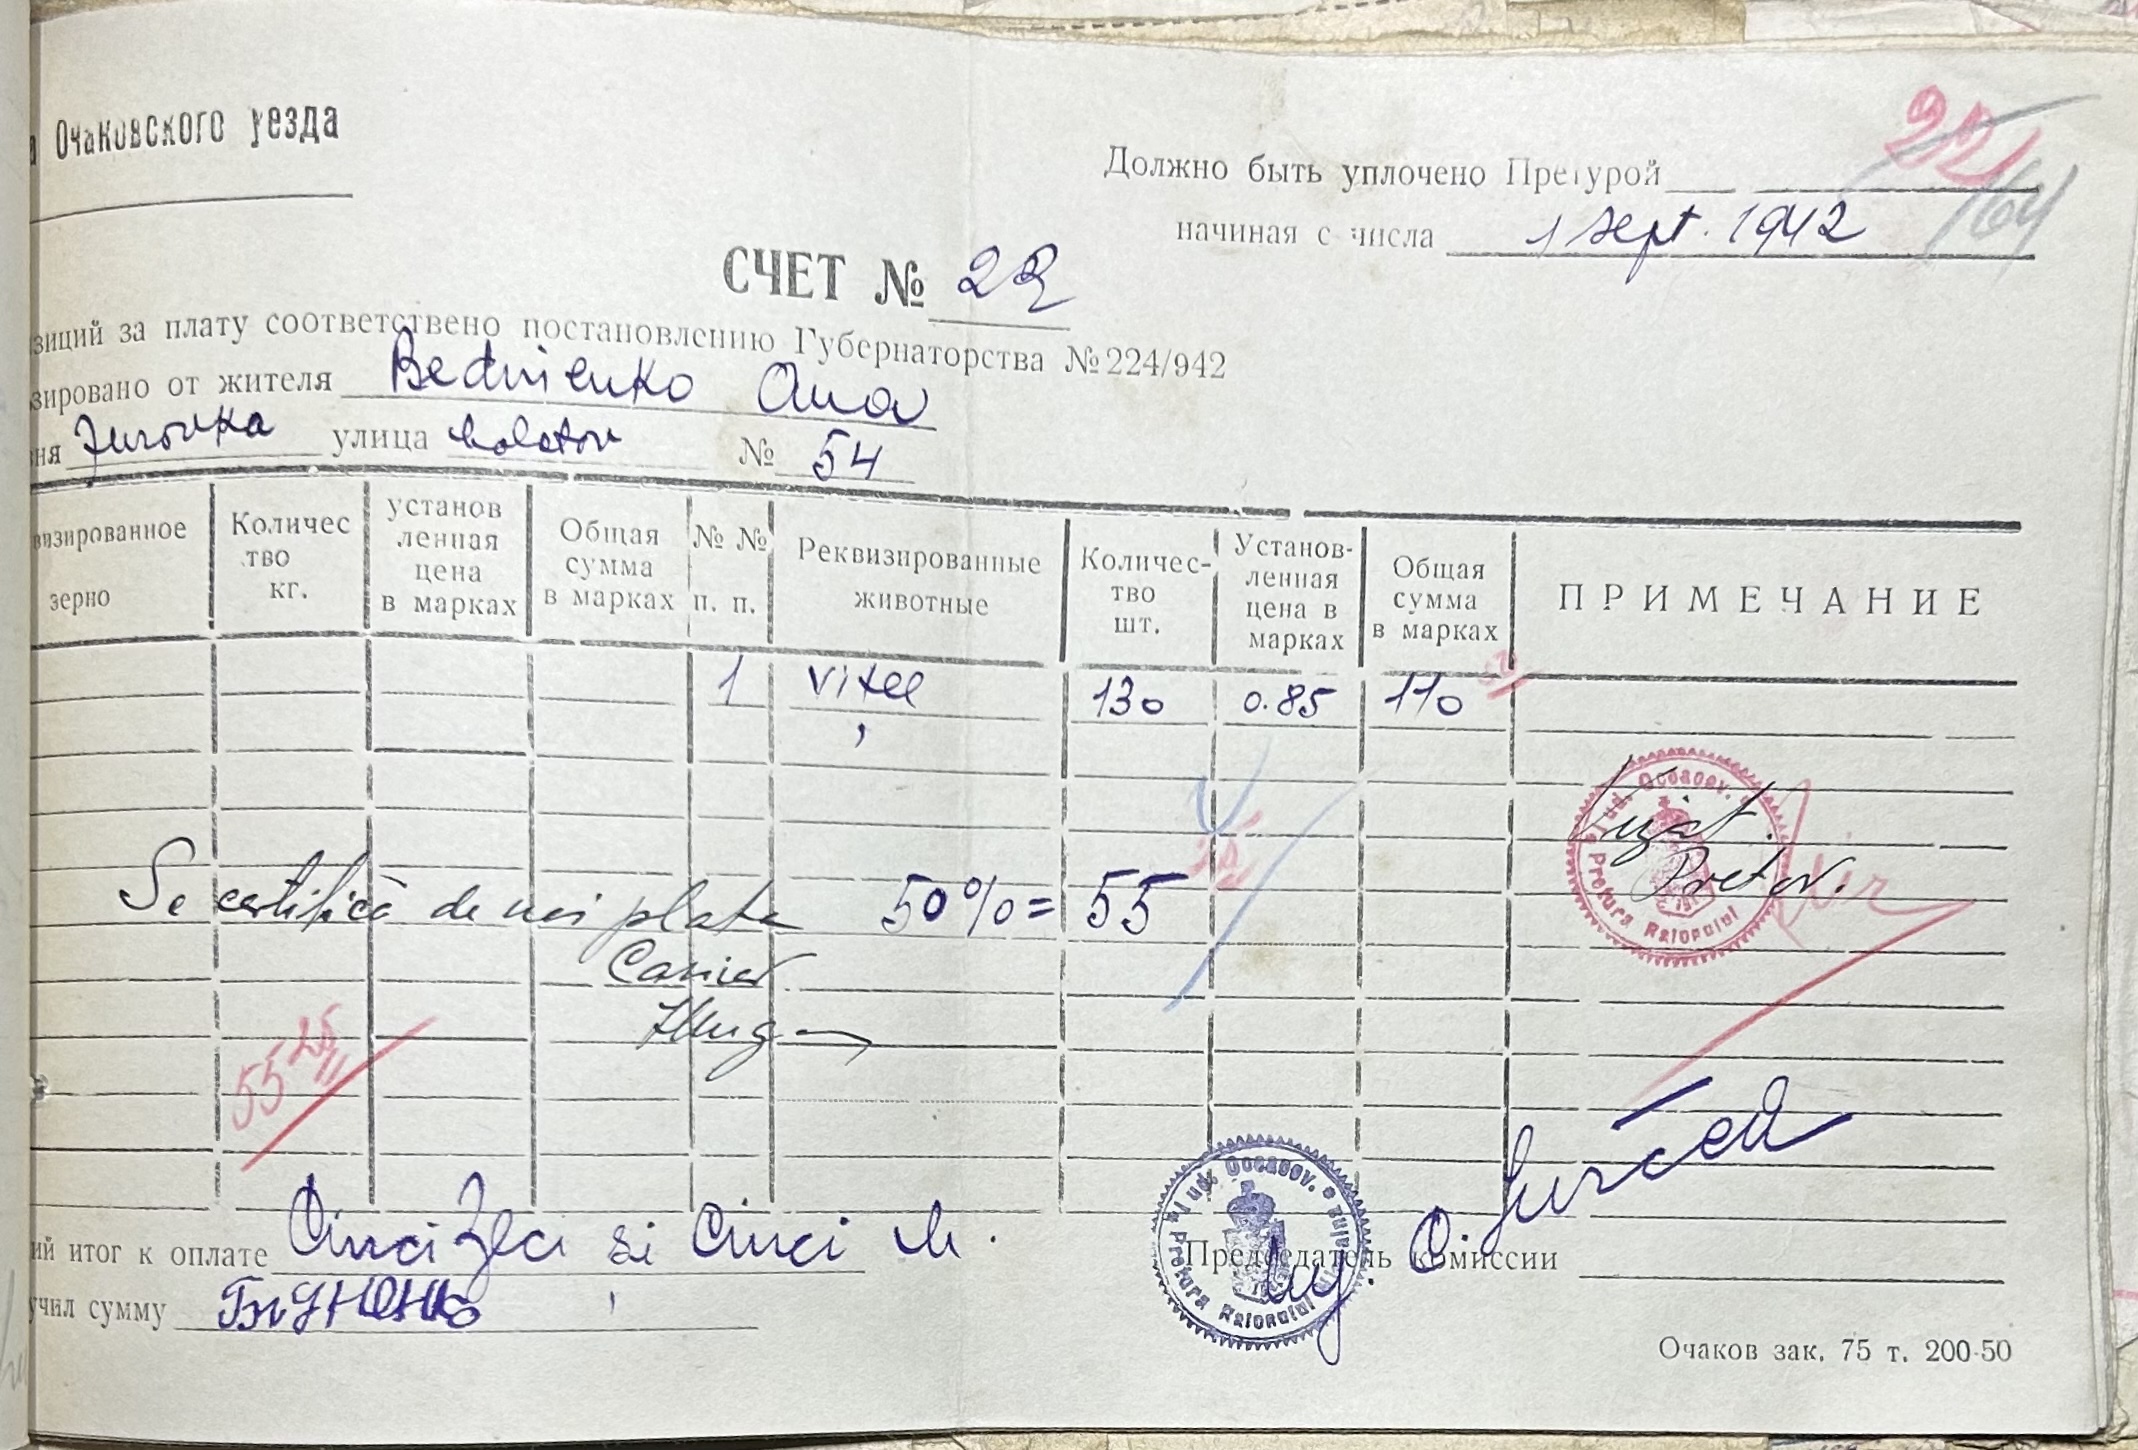 а Очаковского уезда
22
164
Должно быть уплочено Претурой
начиная с числа 1 sept. 1942
СЧЕТ № 22
зиций за плату соответствено постановлению Губернаторства № 224/942
зировано от жителя Bednienko Ana
ня улица № 54
визированное зерно
Количес тво кг.
установ ленная цена в марках
Общая сумма в марках
№ № п. п.
Реквизированные животные
Количес- тво шт.
Установ- ленная цена в марках
Общая сумма в марках
ПРИМЕЧАНИE
1 vițel 130 0.85 110
Se certifică de noi plata 50% = 55
Casier
Pretor.
Pretura Raionului
jud. Oceacov.
55 25
ий итог к оплате Cinci Zeci și Cinci M.
учил сумму
Председатель комиссии
Pretura Raionului
jud. Oceacov.
Очаков зак. 75 т. 200-50